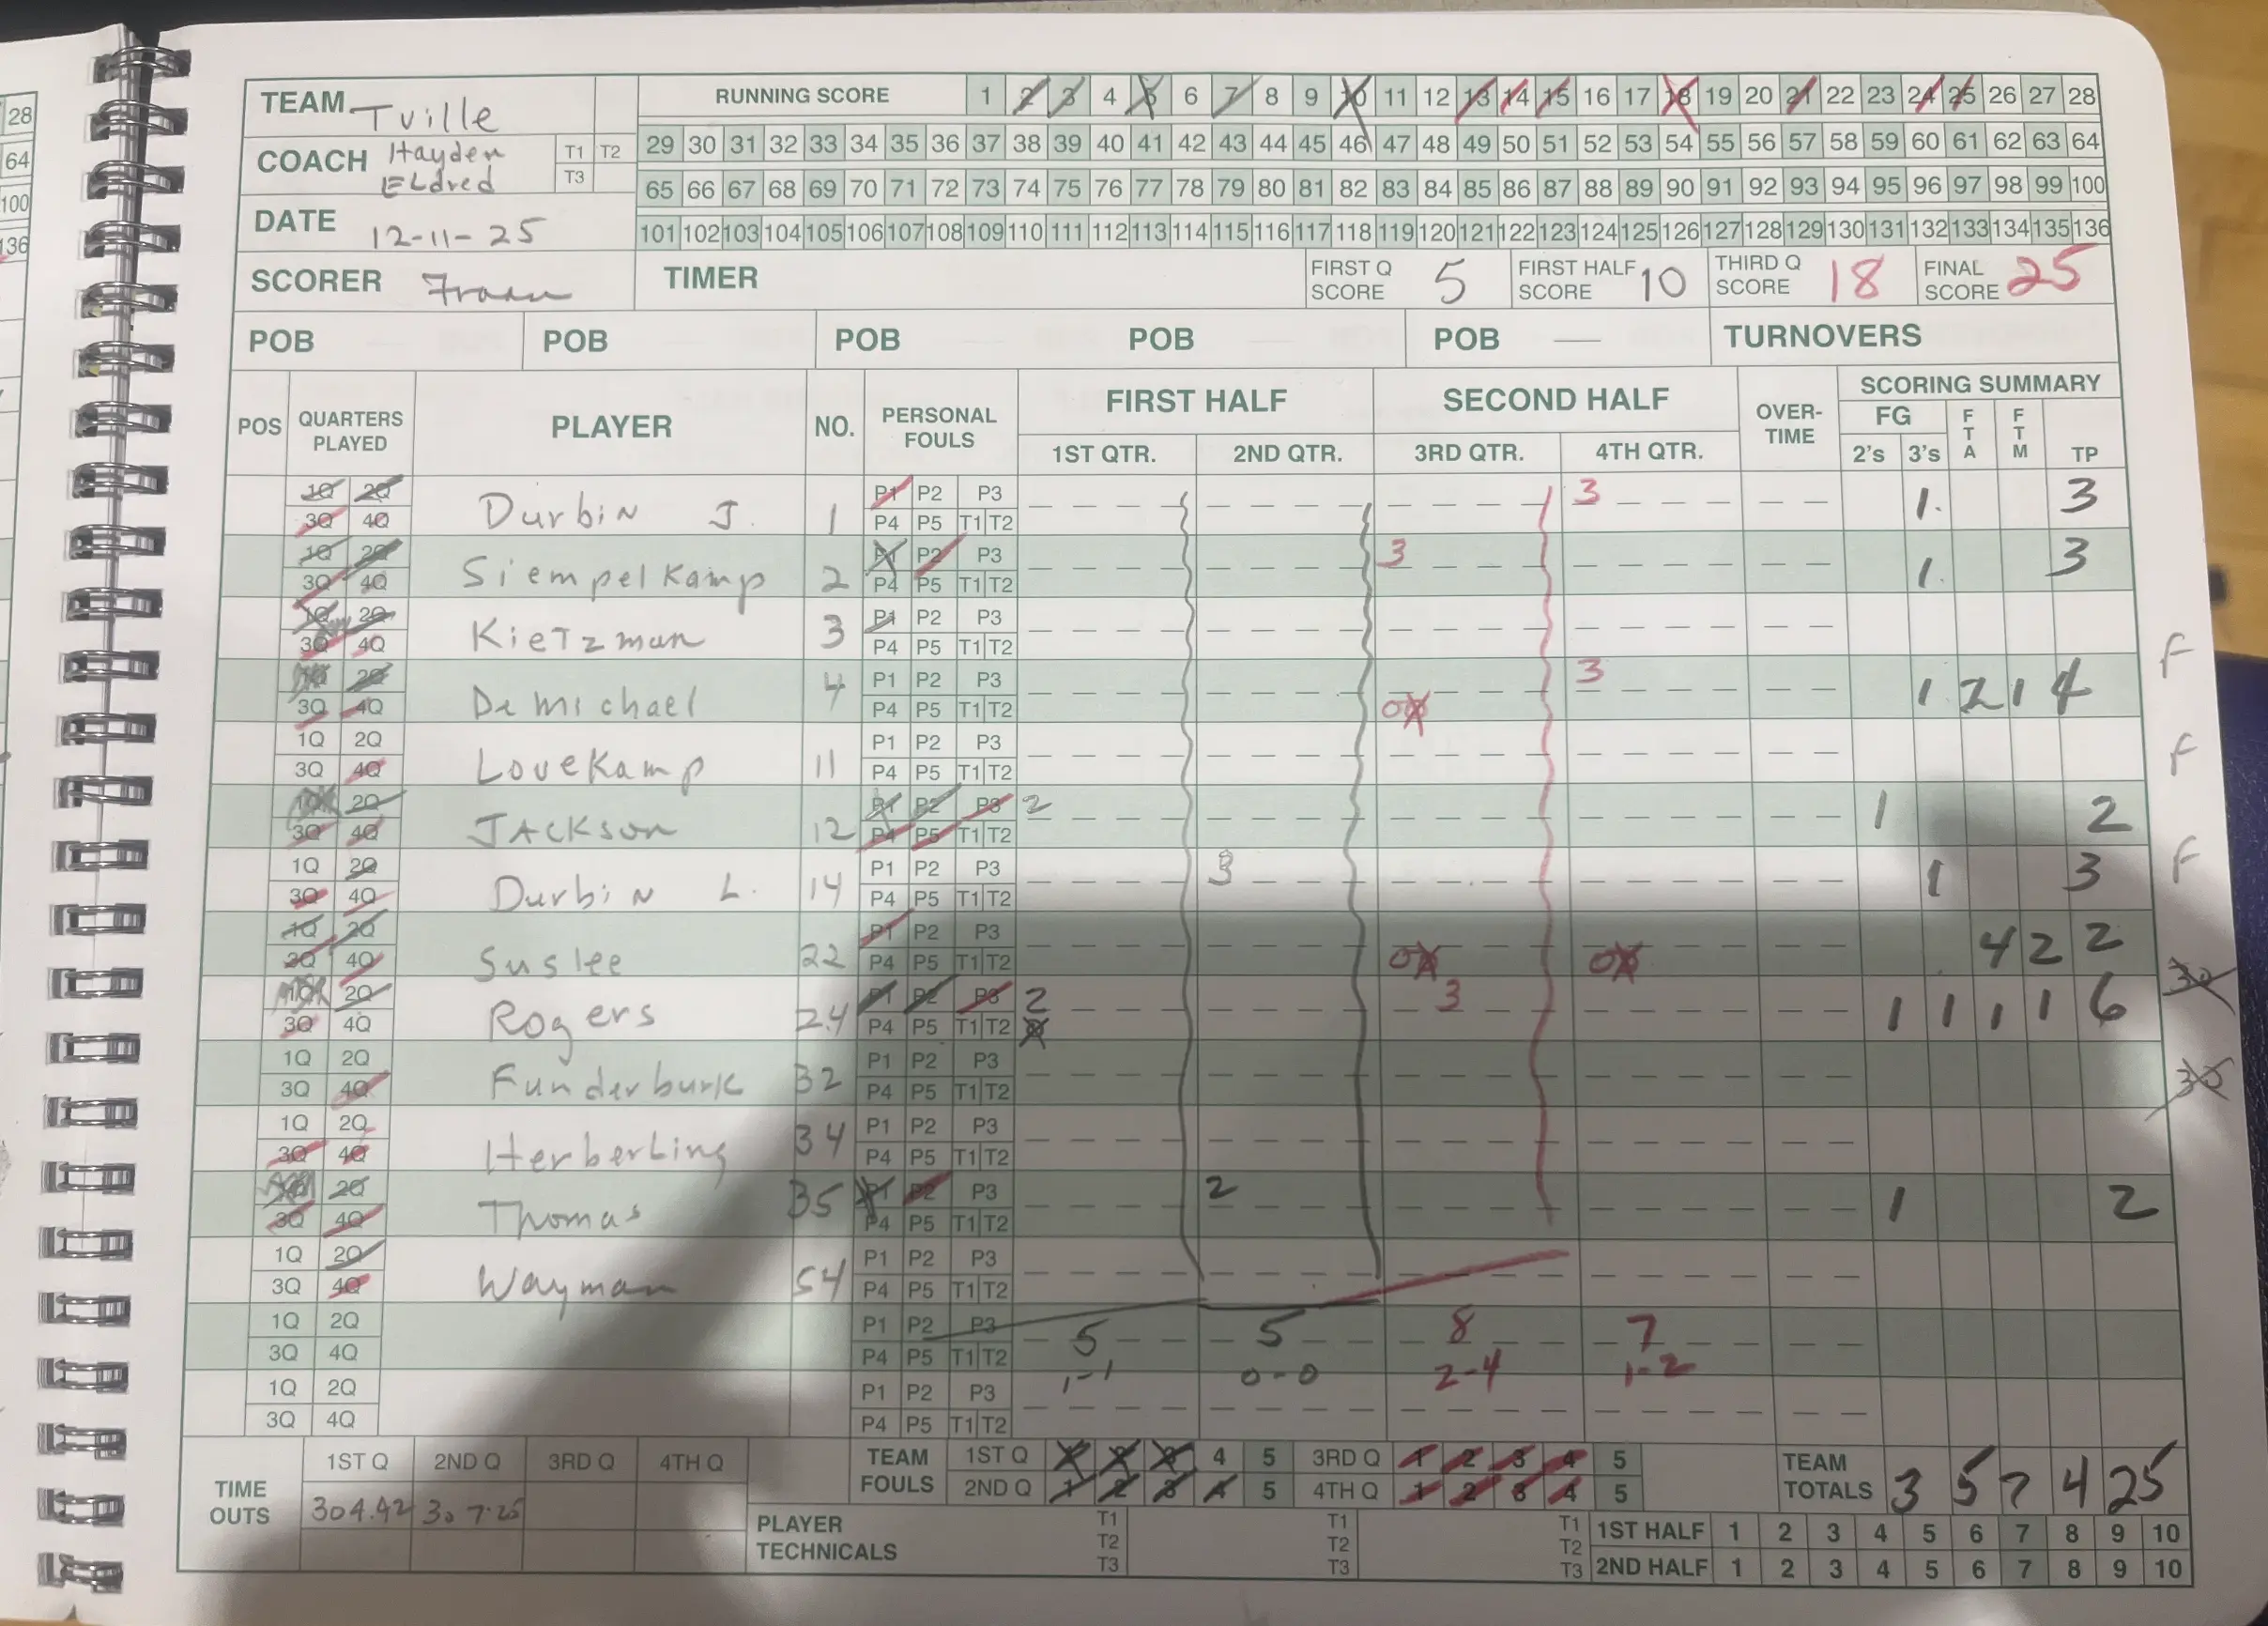 28
64
100
136
TEAM Tville
COACH Hayden Eldred T1 T2 T3
DATE 12-11-25
RUNNING SCORE 1 2 3 4 5 6 7 8 9 10 11 12 13 14 15 16 17 18 19 20 21 22 23 24 25 26 27 28
29 30 31 32 33 34 35 36 37 38 39 40 41 42 43 44 45 46 47 48 49 50 51 52 53 54 55 56 57 58 59 60 61 62 63 64
65 66 67 68 69 70 71 72 73 74 75 76 77 78 79 80 81 82 83 84 85 86 87 88 89 90 91 92 93 94 95 96 97 98 99 100
101 102 103 104 105 106 107 108 109 110 111 112 113 114 115 116 117 118 119 120 121 122 123 124 125 126 127 128 129 130 131 132 133 134 135 136
SCORER
TIMER
FIRST Q SCORE 5 FIRST HALF SCORE 10 THIRD Q SCORE 18 FINAL SCORE 25
POB POB POB POB POB TURNOVERS
POS QUARTERS PLAYED PLAYER NO. PERSONAL FOULS FIRST HALF SECOND HALF OVER-TIME SCORING SUMMARY
1ST QTR. 2ND QTR. 3RD QTR. 4TH QTR. FG 2's 3's FTA FTM TP
1Q 2Q 3Q 4Q Durbin J. 1 P1 P2 P3 P4 P5 T1 T2 3 1 3
1Q 2Q 3Q 4Q Siempelkamp 2 P1 P2 P3 P4 P5 T1 T2 3 1 3
1Q 2Q 3Q 4Q Kietzman 3 P1 P2 P3 P4 P5 T1 T2
F
1Q 2Q 3Q 4Q DeMichael 4 P1 P2 P3 P4 P5 T1 T2 3 1 2 1 4
1Q 2Q 3Q 4Q Lovekamp 11 P1 P2 P3 P4 P5 T1 T2
F
1Q 2Q 3Q 4Q JAckson 12 P1 P2 P3 P4 P5 T1 T2 2 1 2
1Q 2Q 3Q 4Q Durbin L. 14 P1 P2 P3 P4 P5 T1 T2 3 1 3
F
1Q 2Q 3Q 4Q Suslee 22 P1 P2 P3 P4 P5 T1 T2 4 2 2
30
1Q 2Q 3Q 4Q Rogers 24 P1 P2 P3 P4 P5 T1 T2 2 3 1 1 1 1 6
1Q 2Q 3Q 4Q Funderburk 32 P1 P2 P3 P4 P5 T1 T2
30
1Q 2Q 3Q 4Q Herberling 34 P1 P2 P3 P4 P5 T1 T2
1Q 2Q 3Q 4Q Thomas 35 P1 P2 P3 P4 P5 T1 T2 2 1 2
1Q 2Q 3Q 4Q Wayman 54 P1 P2 P3 P4 P5 T1 T2
1Q 2Q 3Q 4Q P1 P2 P3 P4 P5 T1 T2 5 5 8 7
1-1 0-0 2-4 1-2
1Q 2Q 3Q 4Q P1 P2 P3 P4 P5 T1 T2
TIME OUTS 1ST Q 2ND Q 3RD Q 4TH Q
30 4.42 30 7.25
TEAM FOULS 1ST Q 1 2 3 4 5 3RD Q 1 2 3 4 5
2ND Q 1 2 3 4 5 4TH Q 1 2 3 4 5
TEAM TOTALS 3 5 7 4 25
PLAYER TECHNICALS T1 T2 T3 T1 T2 T3 T1 T2 T3
1ST HALF 1 2 3 4 5 6 7 8 9 10
2ND HALF 1 2 3 4 5 6 7 8 9 10